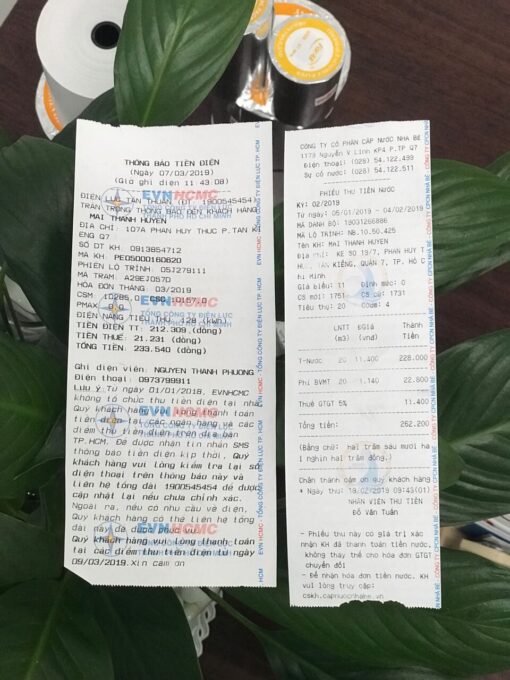 THÔNG BÁO TIỀN ĐIỆN
(Ngày 07/03/2019)
(Giờ ghi điện 11:43:08)
EVNHCMC
ĐIỆN LỰC TÂN THUẬN (ĐT: 1900545454)
TRÂN TRỌNG THÔNG BÁO ĐẾN KHÁCH HÀNG
MAI THANH HUYEN
ĐỊA CHỈ: 107A PHAN HUY THUC P.TAN K
ENG Q7
SỐ DT KH: 0913854712
MÃ KH: PE05000160820
PHIÊN LỘ TRÌNH: 05J279111
MÃ TRẠM: A29EJ057D
HÓA ĐƠN THÁNG: 03/2019
CSM: 10285.0 CSC:10157.0
PMAX:
ĐIỆN NĂNG TIÊU THỤ: 128 (kWh)
TIỀN ĐIỆN TT: 212.309 (đồng)
TIỀN THUẾ: 21.231 (đồng)
TỔNG TIỀN: 233.540 (đồng)
Ghi điện viên: NGUYEN THANH PHUONG
Điện thoại: 0973799911
Lưu ý: Từ ngày 01/01/2018, EVNHCMC
không tổ chức thu tiền điện tại nhà
Quý khách hàng vui lòng thanh toán
tiền điện tại các ngân hàng và các
điểm thu tiền điện trên địa bàn
TP.HCM. Để được nhận tin nhắn SMS
thông báo tiền điện kịp thời, Quý
khách hàng vui lòng kiểm tra lại số
điện thoại trên thông báo này và
liên hệ tổng đài 1900545454 để được
cập nhật lại nếu chưa chính xác.
Ngoài ra, nếu có nhu cầu về điện,
Quý khách hàng có thể liên hệ tổng
đài này để được phục vụ.
Quý khách hàng vui lòng thanh toán
tại các điểm thu tiền điện từ ngày
09/03/2019. Xin cám ơn
CÔNG TY CỔ PHẦN CẤP NƯỚC NHÀ BÈ
1179 Nguyễn V Linh KP4 P.TP Q7
Điện thoại: (028) 54.122.499
Sự cố nước: (028) 54.122.511
PHIẾU THU TIỀN NƯỚC
KỲ: 02/2019
Từ ngày: 05/01/2019 - 04/02/2019
MÃ DANH BỘ: 18001266488
MÃ LỘ TRÌNH: NB.10.50.425
Tên KH: MAI THANH HUYEN
Địa chỉ: KE SO 19/7, PHAN HUY T
TÂN KIỂNG, QUẬN 7, TP. HỒ C
hí Minh
Giá biểu: 11 Định mức: 0
CS mới: 1751 CS cũ: 1731
Tiêu thụ: 20 Code: 4
LNTT ĐGiá Thành
(m3) (vnđ) Tiền
T-Nước 20 11.400 228.000
Phí BVMT 20 1.140 22.800
Thuế GTGT 5% 11.400
Tổng tiền: 262.200
(Bằng chữ: hai trăm sáu mươi ha
i nghìn hai trăm đồng.)
Chân thành cảm ơn quý khách hàng
* Ngày thu: 19/02/2019 09:43(01)
NHÂN VIÊN THU TIỀN
Đỗ Văn Tuấn
- Phiếu thu này có giá trị xác
nhận KH đã thanh toán tiền nước,
không thay thế cho hóa đơn GTGT
chuyển đổi
- Để nhận hóa đơn tiền nước, KH
vui lòng truy cập:
cskh.capnuocnhabe.vn